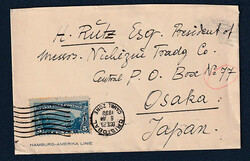 H. Rütz Esq. President
Messrs. Nichizui Trading Co.
Central P.O. Box No 77
Osaka
Japan.
HAMBURG-AMERIKA LINIE